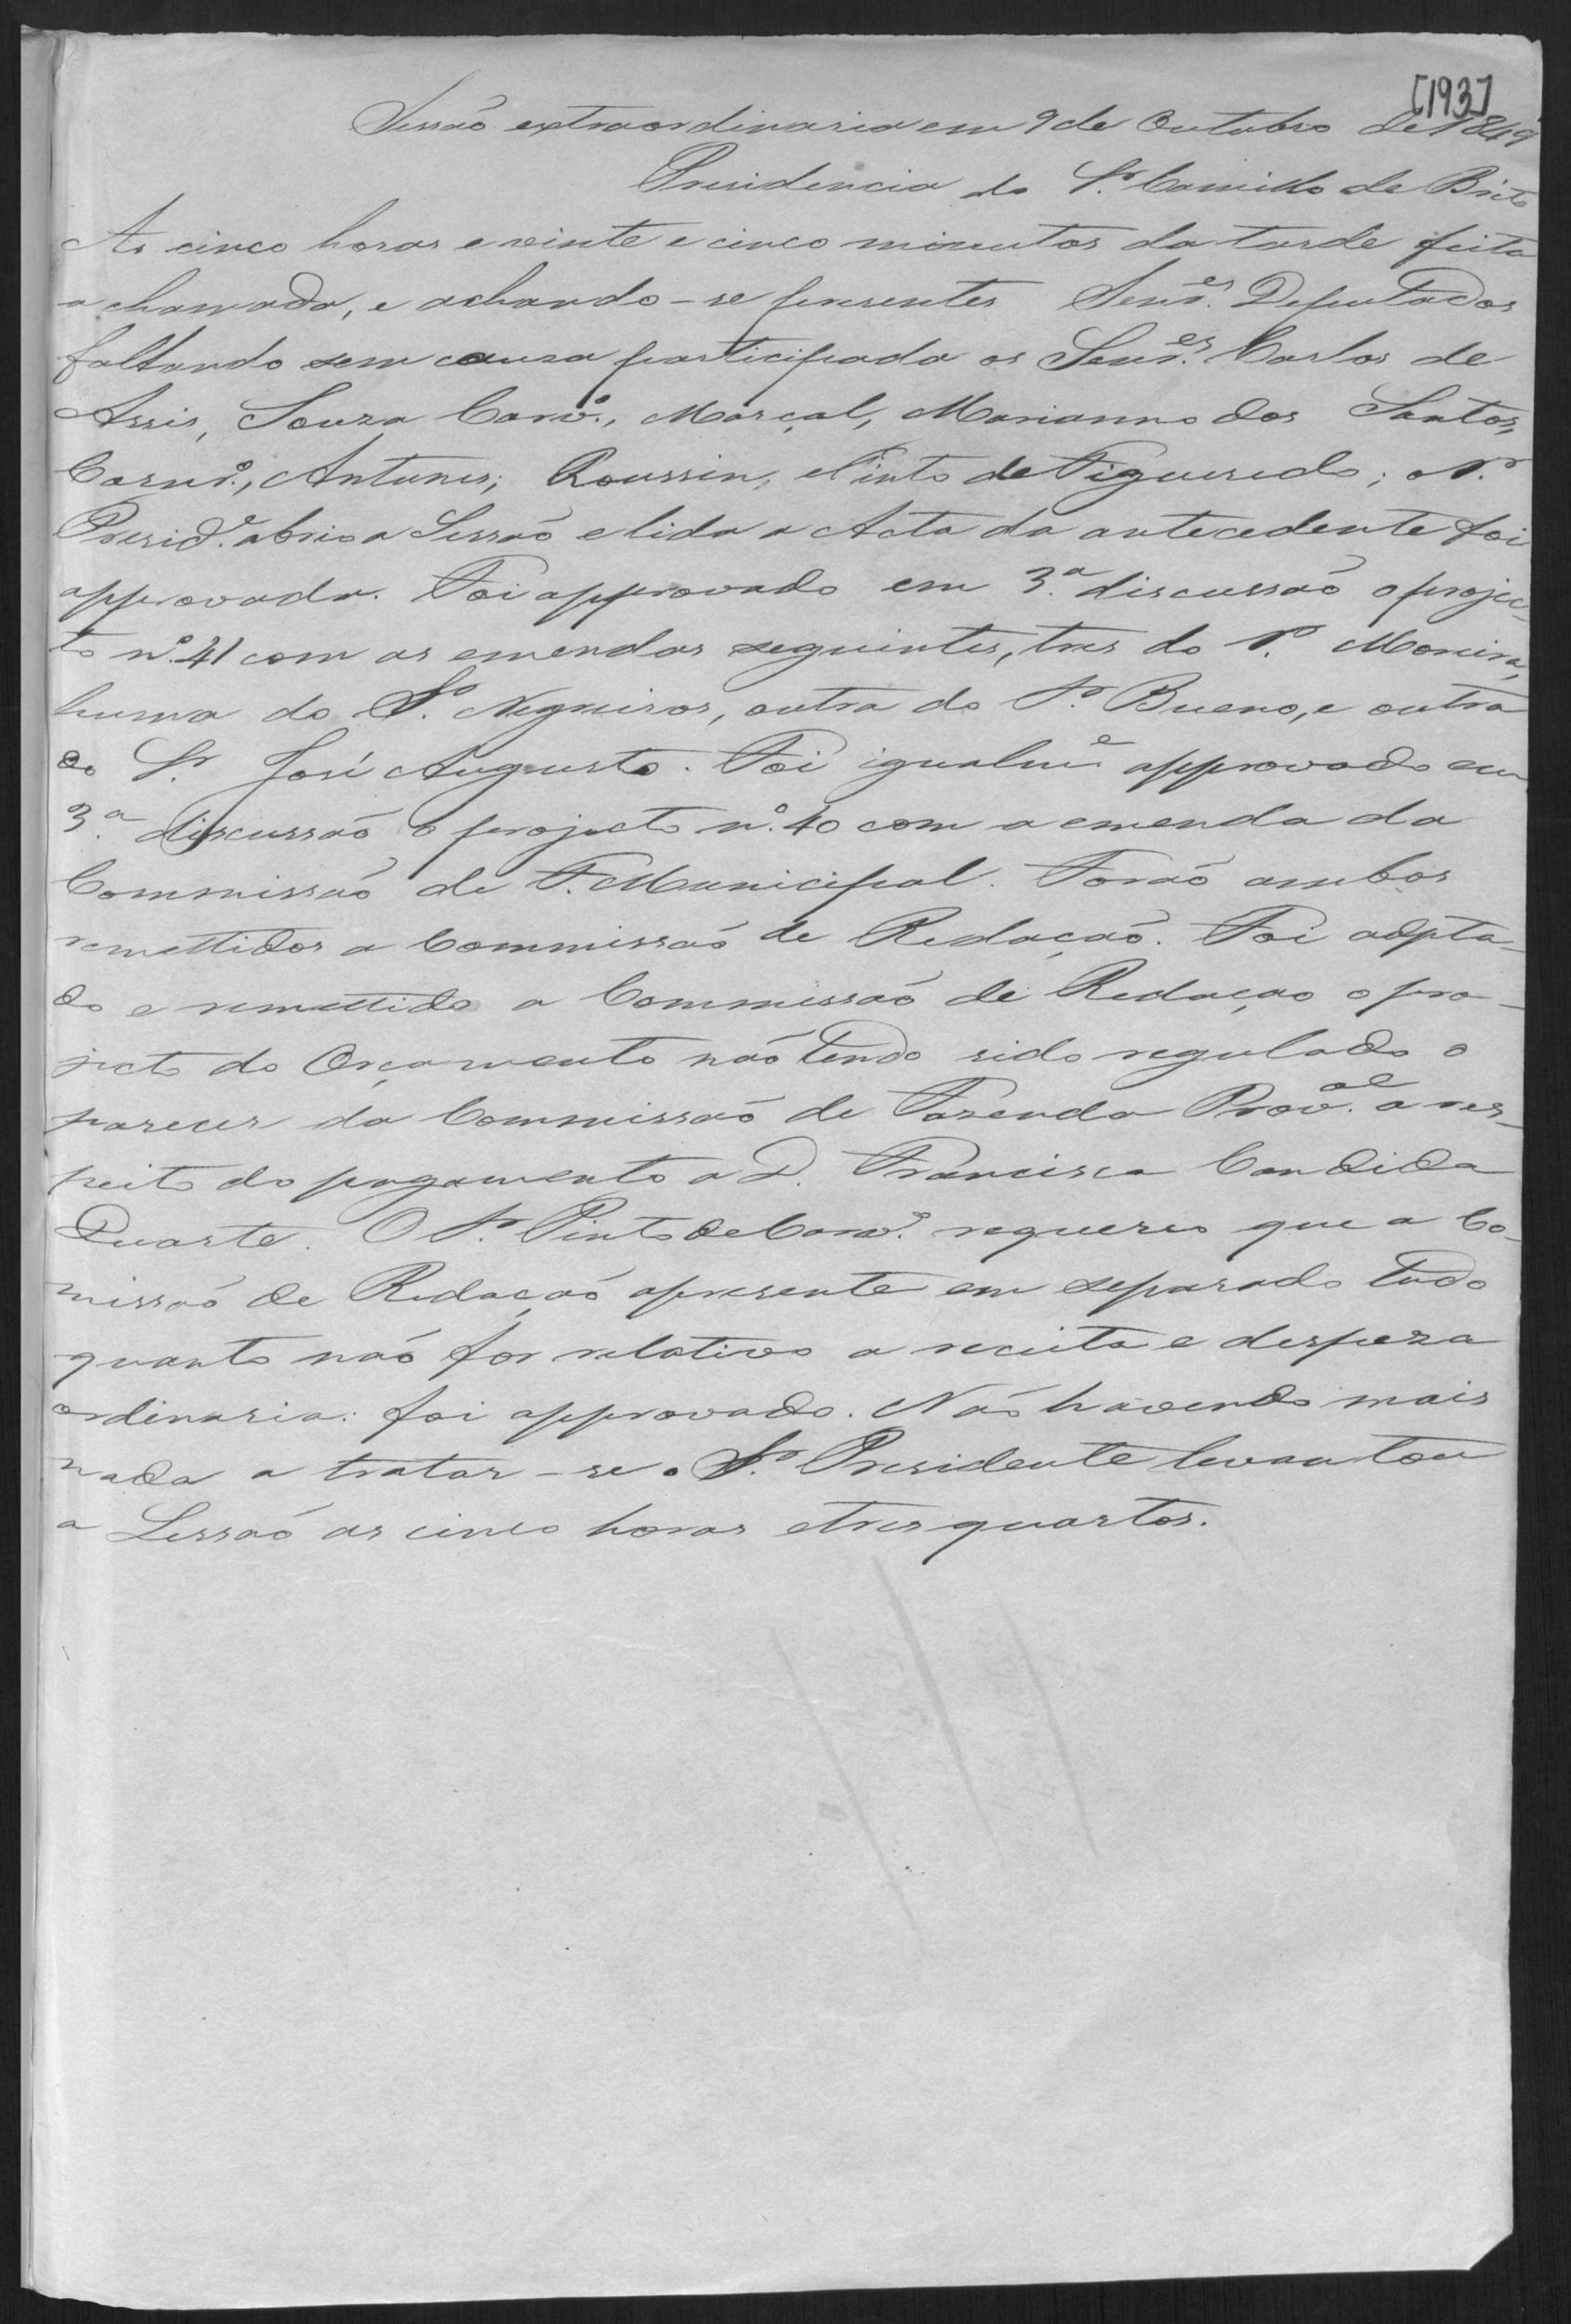 [193]
Sessaõ extraordinaria em 9 de Outubro de 1849
Presidencia do Sr. Camillo de Brito
As cinco horas e vinte e cinco minutos da tarde feita
a chamada, e achando-se presentes Senr.es Deputados
faltando sem causa participada os Senr.es Carlos de
Assis, Souza Carv.o, Marçal, Marianno dos Santos,
Carnr.o, Antunes, Roussin, e Pinto de Figueredo; o Sr.
Presid.e abrio a Sessaõ e lida a Acta da antecedente foi
approvada. Foi approvado em 3.a discussaõ o projec-
to n.o 41 com as emendas seguintes, tres do Sr. Moreira,
huma do Sr. Negreiros, outra do Sr. Bueno, e outra
do Sr. José Augusto. Foi igualm.e approvado em
3.a discussaõ o projecto n.o 40 com a emenda da
Commissaõ de F. Municipal. Foraõ ambos
remettidos a Commissaõ de Redaçaõ. Foi adopta-
do e remettido a Commissaõ de Redaçao o pro-
jecto do Orçamento naõ tendo sido regulado o
parecer da Commissaõ de Fazenda Prov.al a res-
peito do pagamento a D. Francisca Candida
Duarte. O Sr. Pinto de Carv.o requereo que a Co-
missaõ de Redaçaõ apresente em separado tudo
quanto naõ for relativo a receita e despeza
ordinaria: foi approvado. Naõ havendo mais
nada a tratar-se o Sr. Presidente levantou
a Sessaõ as cinco horas e tres quartos.